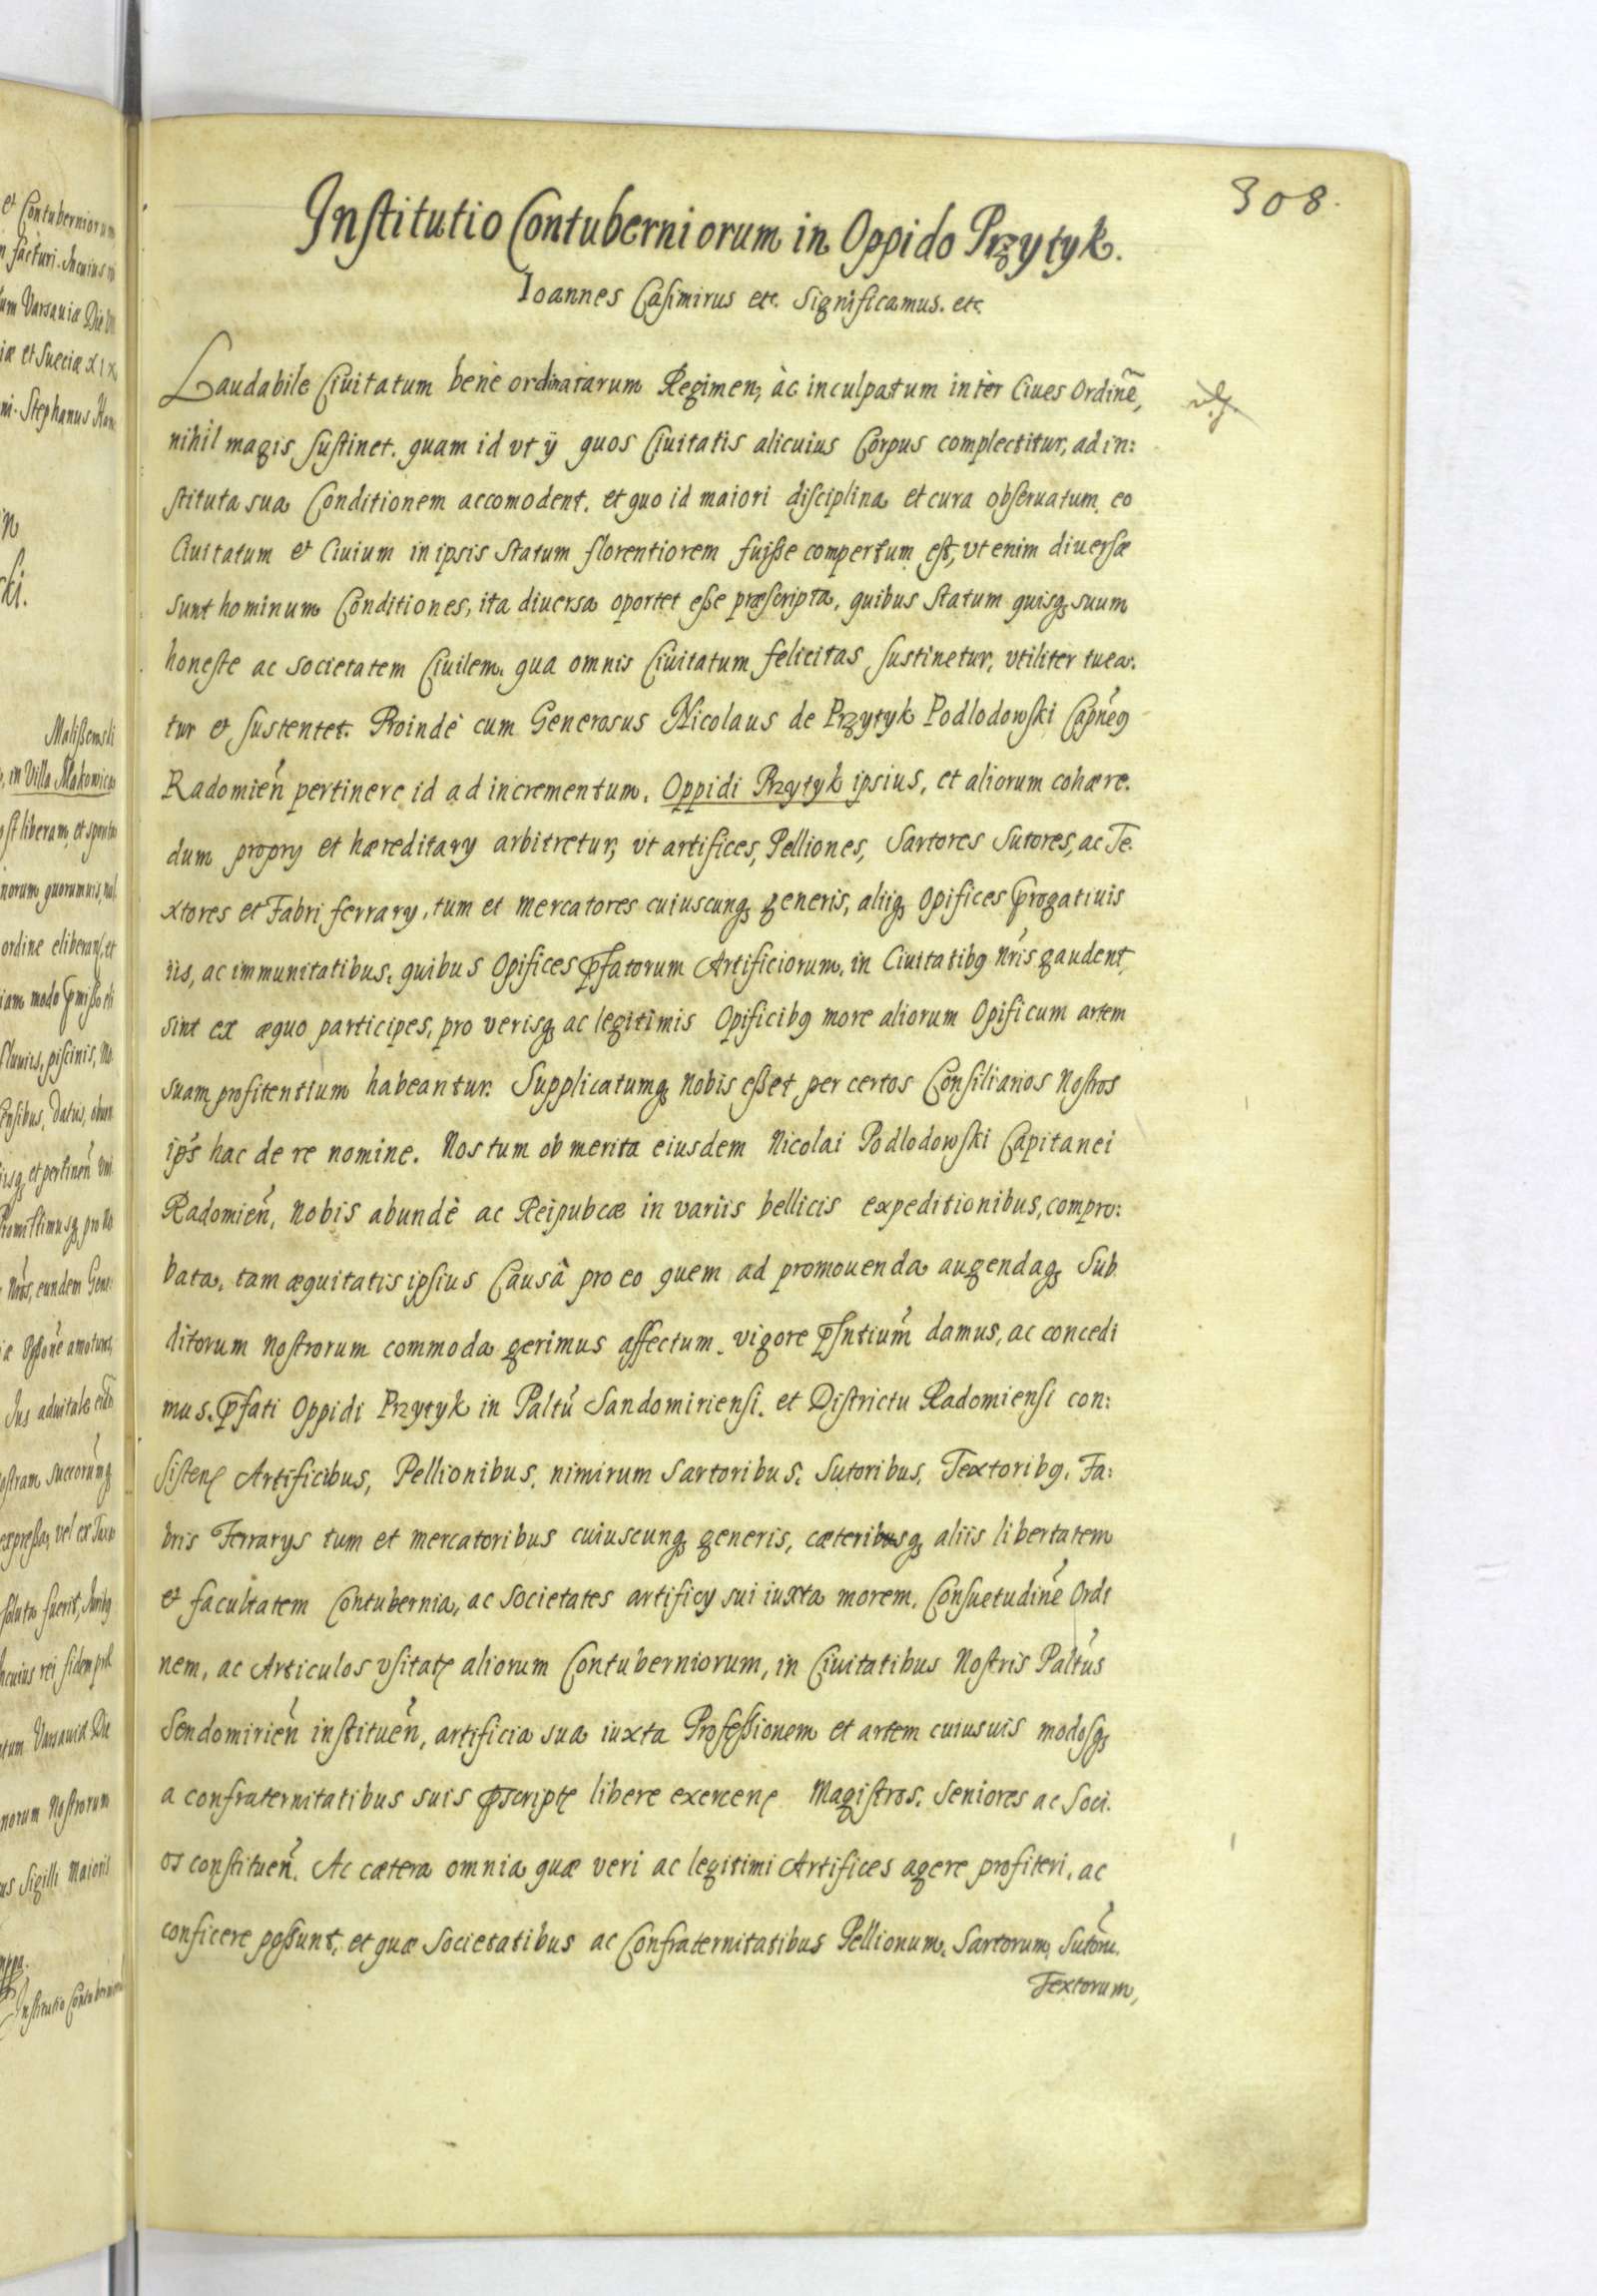 308.
Institutio Contuberniorum in Oppido Przytyk.
Ioannes Casimirus etc. Significamus. etc.
Laudabile Ciuitatum benè ordinatarum Regimen, àc inculpatum intèr Ciues Ordinẽ,
nihil magis sustinet. quam id vt ÿ quos Ciuitatis alicuius Corpus complectitur, ad in:
stituta sua Conditionem accomodent. et quo id maiori disciplina et cura obseruatum, eo
Ciuitatum et Ciuium in ipsis Statum florentiorem fuisse compertum est, vt enim diuersæ
sunt hominum Conditiones, ita diuersa oportet esse præscripta, quibus Statum quisq suum
honeste ac societatem Ciuilem, qua omnis Ciuitatum felicitas sustinetur, vtiliter tuea.
tur et sustentet. Proindè cum Generosus Nicolaus de Przytyk Podlodowski Capneg
Radomien̉ pertinere id ad incrementum. Oppidi Przytyk ipsius, et aliorum cohære.
dum propry et hæreditary arbitretur, vt artifices, Pelliones, Sartores Sutores, ac Te.
xtores et Fabri ferrary, tum et mercatores cuiuscunq generis, aliiq Opifices progatiuis
iis, ac immunitatibus, quibus Opifices pfatorum Artificiorum, in Ciuitatibq nris gaudent,
sint ex æquo participes, pro verisq ac legitimis Opificibq more aliorum Opificum artem
suam profitentium habeantur. Supplicatumq nobis esset per certos Consiliarios Nostros
ips hac de re nomine. Nos tum ob merita eiusdem Nicolai Podlodowski Capitanei
Radomien̉, nobis abundè ac Reipubcæ in variis bellicis expeditionibus, compro:
bata, tam æquitatis ipsius Causâ pro eo quem ad promouenda augendaq Sub
ditorum nostrorum commoda gerimus affectum. vigore psntium̉ damus, ac concedi
mus. pfati Oppidi Przytyk in Paltu̓ Sandomiriensi. et Districtu Radomiensi con:
sisten Artificibus, Pellionibus, nimirum Sartoribus, Sutoribus, Textoribq. Fa:
bris Ferrarys tum et mercatoribus cuiuscunq generis, cæteribusq aliis libertatem
et facultatem Contubernia, ac societates artificy sui iuxta morem, Consuetudine̓ Ordi
nem, ac Articulos vsitate aliorum Contuberniorum, in Ciuitatibus Nostris Paltu̓s
Sendomirien̉ instituen̉, artificia sua iuxta Professionem et artem cuiusuis modosq
a confraternitatibus suis pscripte libere exercene Magistros. Seniores ac Soci.
os constituen̉. Ac cætera omnia quæ veri ac legitimi Artifices agere profiteri, ac
conficere possunt, et quæ Societatibus ac Confraternitatibus Pellionum, Sartorum, Sutoru̓.
Textorum,